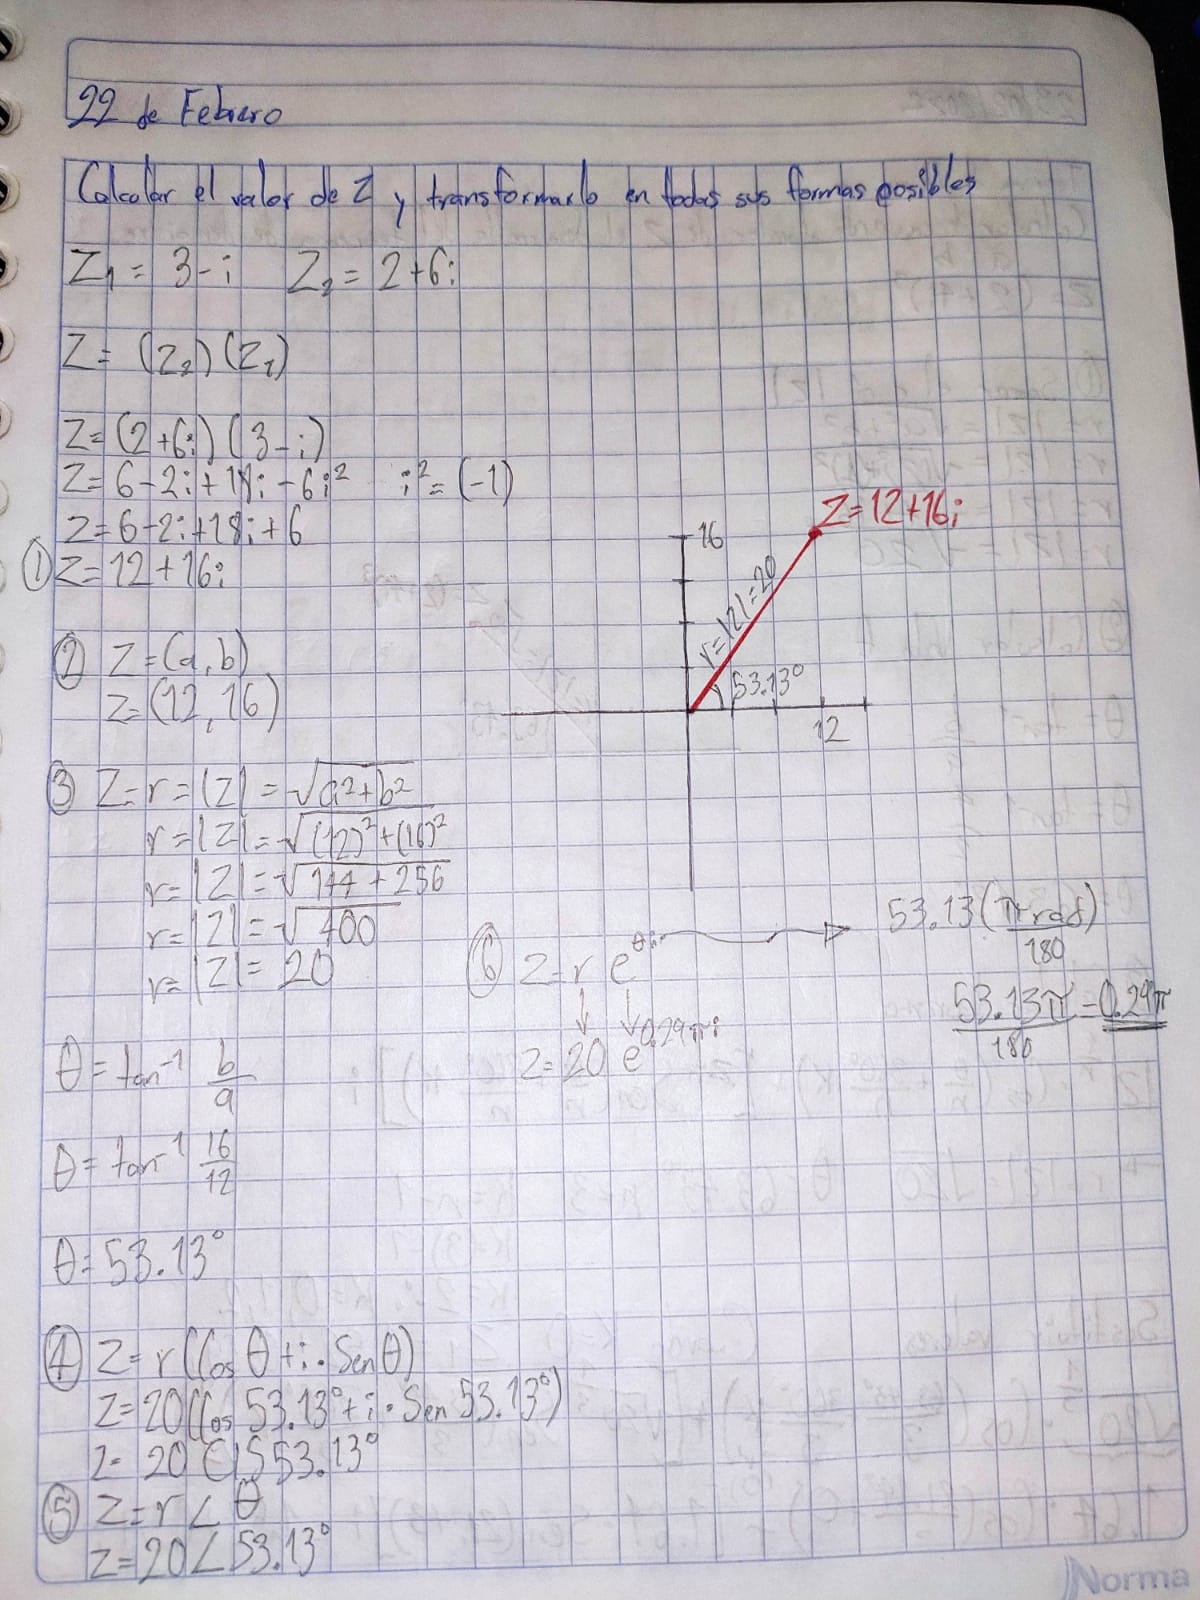 22 de Febrero
Calcular el valor de Z y transformarlo en todas sus formas posibles
Z₁ = 3 - i   Z₂ = 2 + 6i
Z = (Z₂)(Z₁)
Z = (2 + 6i)(3 - i)
Z = 6 - 2i + 18i - 6i²   i² = (-1)
Z = 6 - 2i + 18i + 6
① Z = 12 + 16i
② Z = (a, b)
Z = (12, 16)
Z = 12 + 16i
16
r = |Z| = 20
53.13°
12
③ Z = r = |Z| = √a² + b²
r = |Z| = √(12)² + (16)²
r = |Z| = √144 + 256
r = |Z| = √400
r = |Z| = 20
θ = tan⁻¹ b/a
θ = tan⁻¹ 16/12
θ = 53.13°
④ Z = r (Cos θ + i · Sen θ)
Z = 20 (Cos 53.13° + i · Sen 53.13°)
Z = 20 CIS 53.13°
⑤ Z = r ∠ θ
Z = 20 ∠ 53.13°
⑥ Z = r e^θi → 53.13 (π rad/180)
53.13π/180 = 0.29π
Z = 20 e^0.29πi
Norma